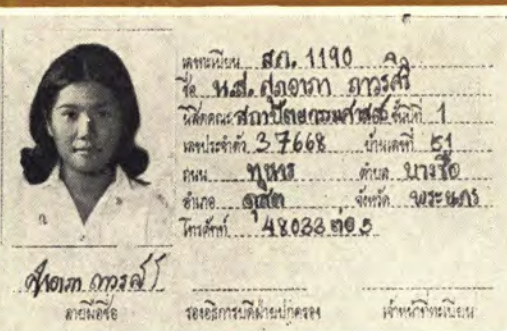 เลขทะเบียน สถ. 1190
ชื่อ น.ส. ศุภอาภา ถาวรศิริ
นิสิตคณะ สถาปัตยกรรมศาสตร์ ชั้นปีที่ 1
เลขประจำตัว 37668 บ้านเลขที่ 51
ถนน ทหาร ตำบล บางซื่อ
อำเภอ ดุสิต จังหวัด พระนคร
โทรศัพท์ 48033 ต่อ 5
ลายมือชื่อ รองอธิการบดีฝ่ายปกครอง เจ้าหน้าที่ทะเบียน